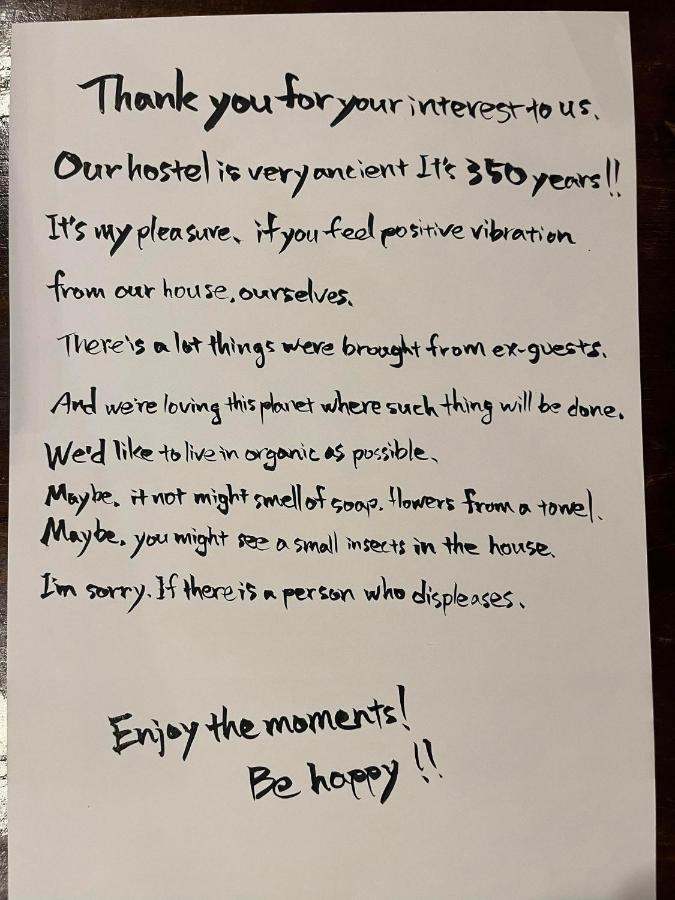 Thank you for your interest to us.
Our hostel is very ancient It's 350 years!!
It's my pleasure、if you feel positive vibration
from our house, ourselves、
There is a lot things were brought from ex-guests.
And we're loving this planet where such thing will be done.
We'd like to live in organic as possible、
Maybe, it not might smell of soap, flowers from a towel、
Maybe, you might see a small insects in the house、
I'm sorry. If there is a person who displeases、
Enjoy the moments!
Be happy!!